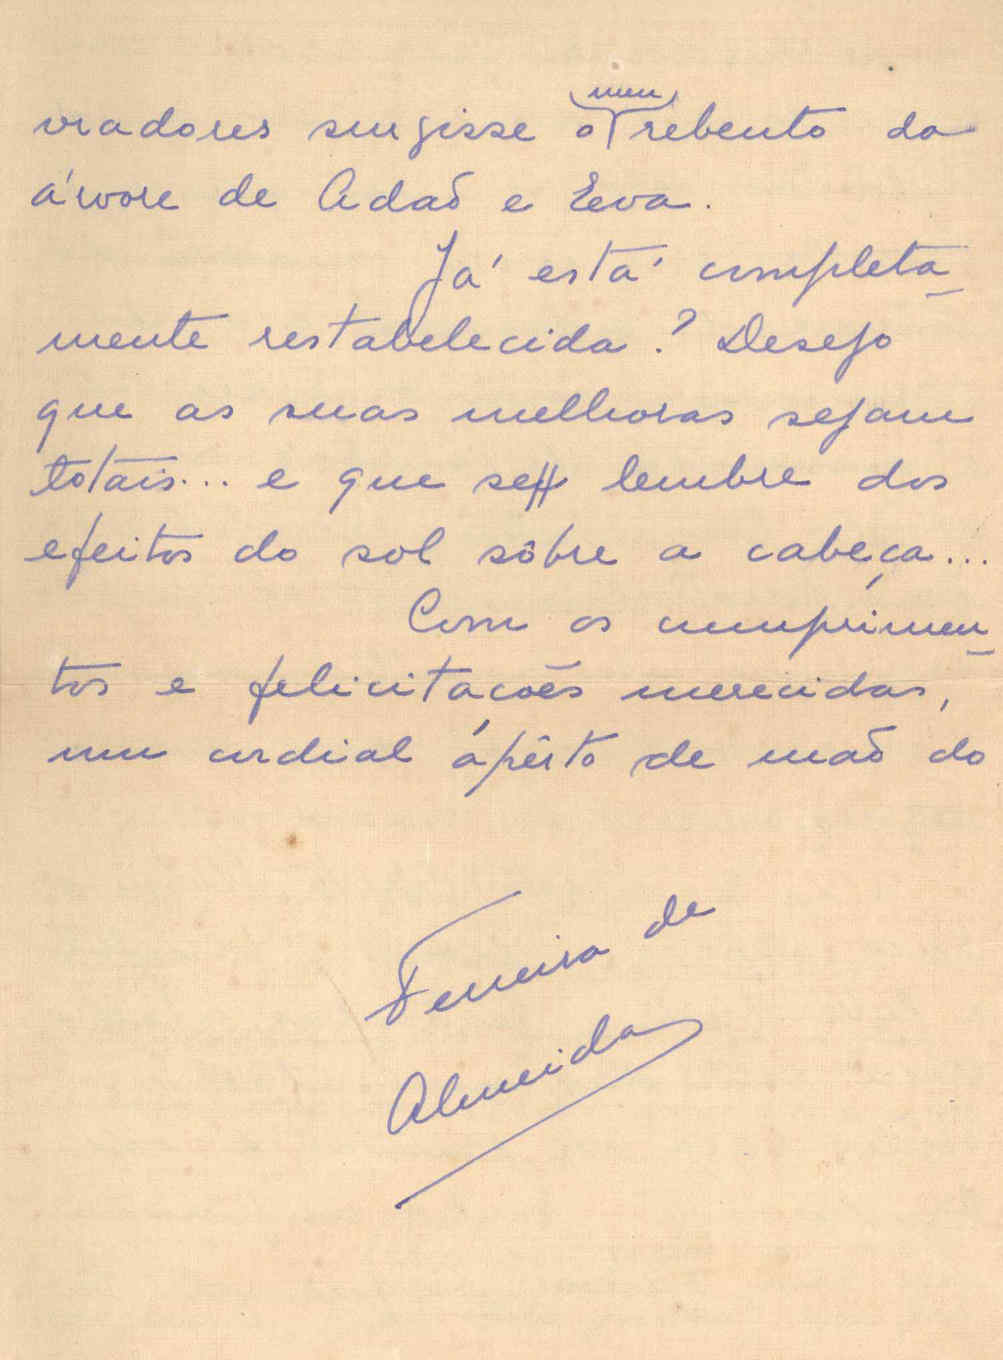 vradores surgisse o rebento da
árvore de Adão e Eva.
Já está completa-
mente restabelecida? Desejo
que as suas melhoras sejam
totais... e que se lembre dos
efeitos do sol sôbre a cabeça...
Com os cumprimen-
tos e felicitações merecidas,
um cordial apêrto de mão do
Ferreira de
Almeida